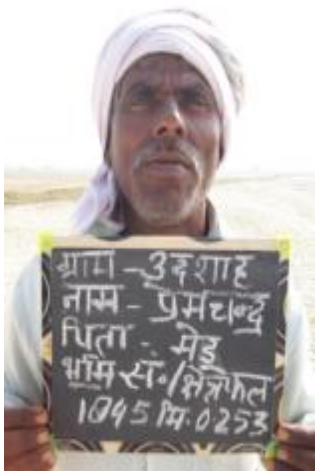 ग्राम - उदशाह
नाम - प्रेमचन्द्र
पिता - मेडू
भूमि सं०/क्षेत्रफल
1045 मि. 0253